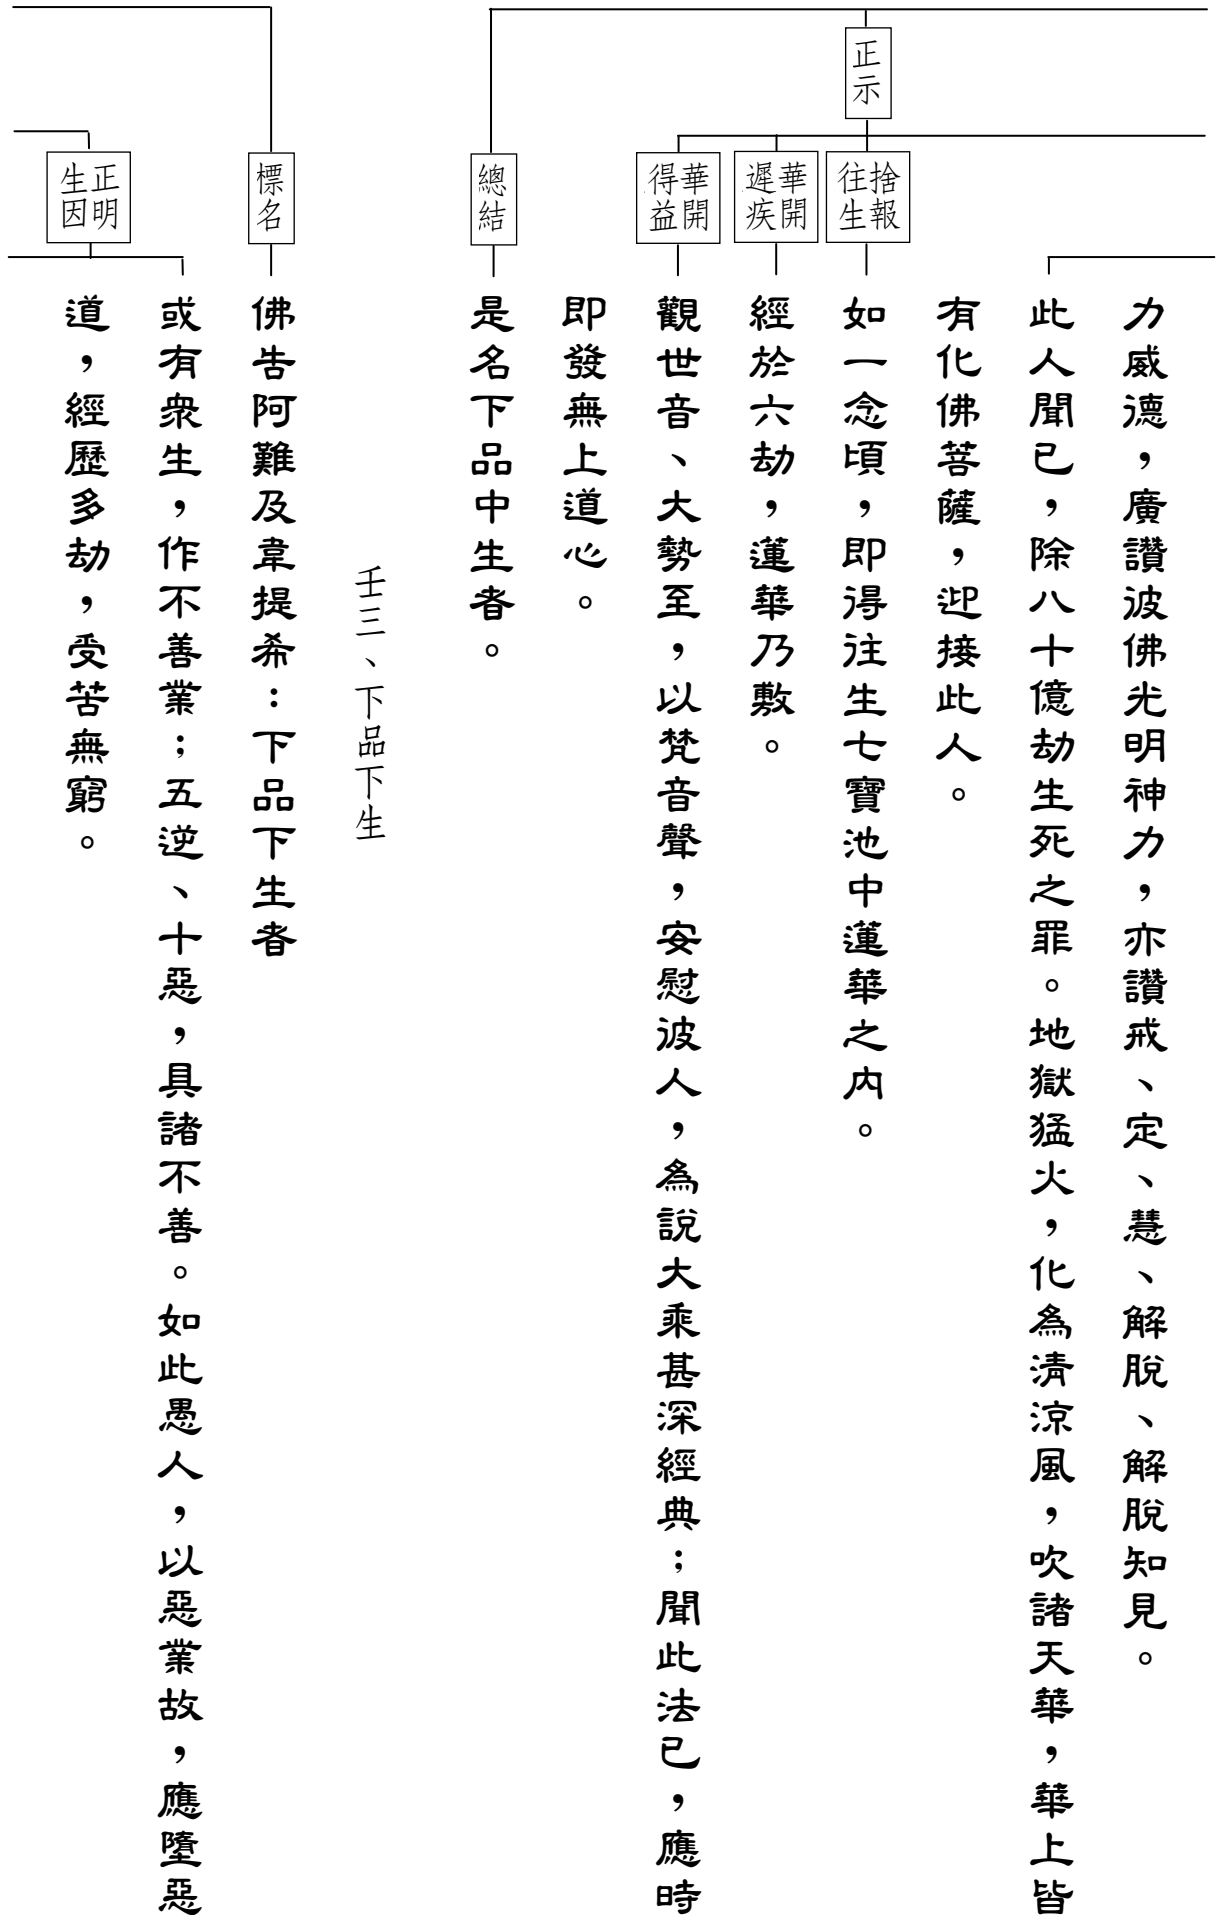 正示
力威德，廣讚彼佛光明神力，亦讚戒、定、慧、解脫、解脫知見。
此人聞已，除八十億劫生死之罪。地獄猛火，化為清涼風，吹諸天華，華上皆
有化佛菩薩，迎接此人。
捨報
往生
如一念頃，即得往生七寶池中蓮華之內。
華開
遲疾
經於六劫，蓮華乃敷。
華開
得益
觀世音、大勢至，以梵音聲，安慰彼人，為說大乘甚深經典；聞此法已，應時
即發無上道心。
總結
是名下品中生者。
壬三、下品下生
標名
佛告阿難及韋提希：下品下生者
正明
生因
或有眾生，作不善業；五逆、十惡，具諸不善。如此愚人，以惡業故，應墮惡
道，經歷多劫，受苦無窮。